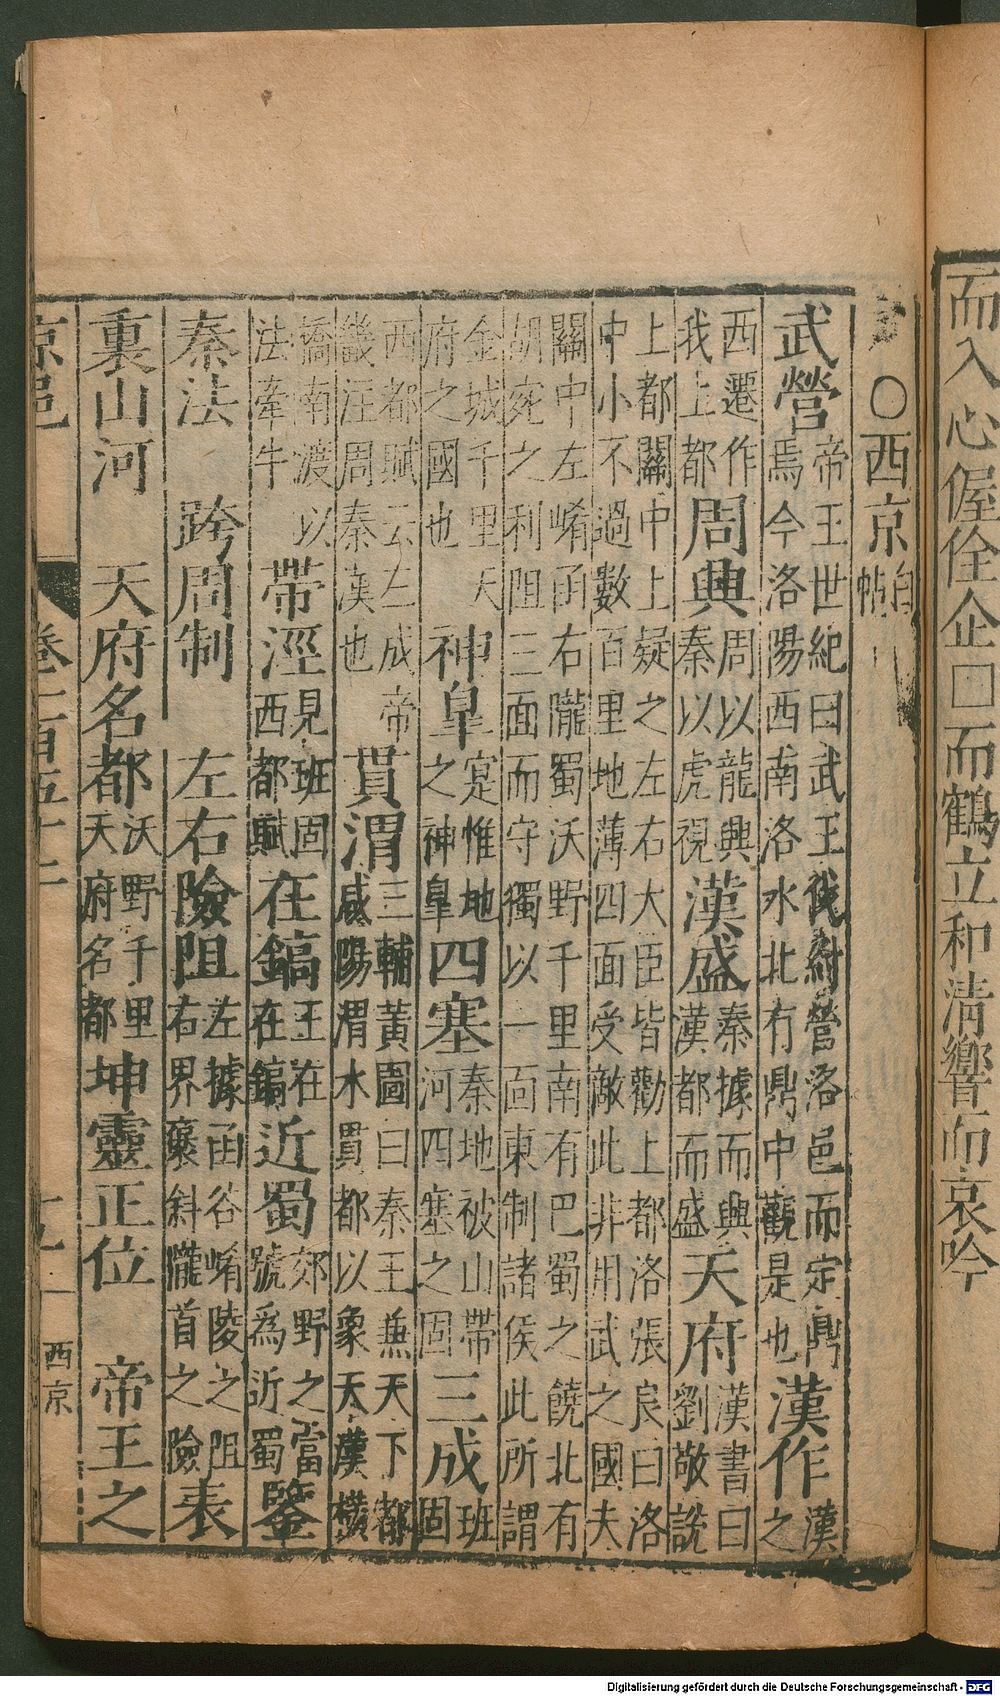 而入心偓佺企□而鶴立和清響而哀吟
〇西京白帖
武營帝王世紀曰武王伐紂營洛邑而定鼎焉今洛陽西南洛水北有鼎中觀是也漢作漢之
西遷作我上都周興周以龍興秦以虎視漢盛秦據而興漢都而盛天府漢書曰劉敬說
上都關中上疑之左右大臣皆勸上都洛張良曰洛中小不過數百里地薄四面受敵此非用武之國夫
關中左崤函右隴蜀沃野千里南有巴蜀之饒北有胡宛之利阻三面而守獨以一面東制諸侯此所謂
金城千里天府之國也神皐寔惟地之神皐四塞秦地被山帶河四塞之固三成班固
西都賦云三成帝畿汪周秦漢也貫渭三輔黃圖曰秦王兼天下都咸陽渭水貫都以象天漢橫
橋南渡以法牽牛帶涇見班固西都賦在鎬王在在鎬近蜀郊野之當號為近蜀鑒
秦法 跨周制 左右險阻左據函谷崤陵之阻右界襃斜隴首之險表
裏山河 天府名都沃野千里天府名都坤靈正位 帝王之
京邑 卷一百五十一 西京
Digitalisierung gefördert durch die Deutsche Forschungsgemeinschaft - DFG